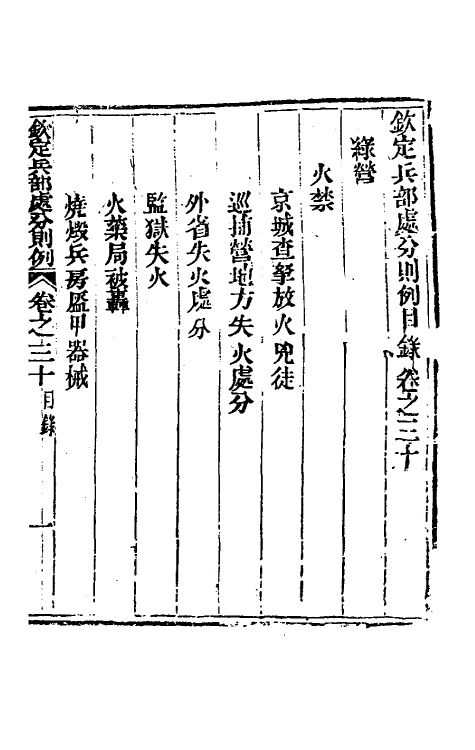 欽定兵部處分則例目錄 卷之三十
綠營
火禁
京城查拏放火兇徒
巡捕營地方失火處分
外省失火處分
監獄失火
火藥局被轟
燒燬兵房盔甲器械
欽定兵部處分則例 卷之三十 目錄 一